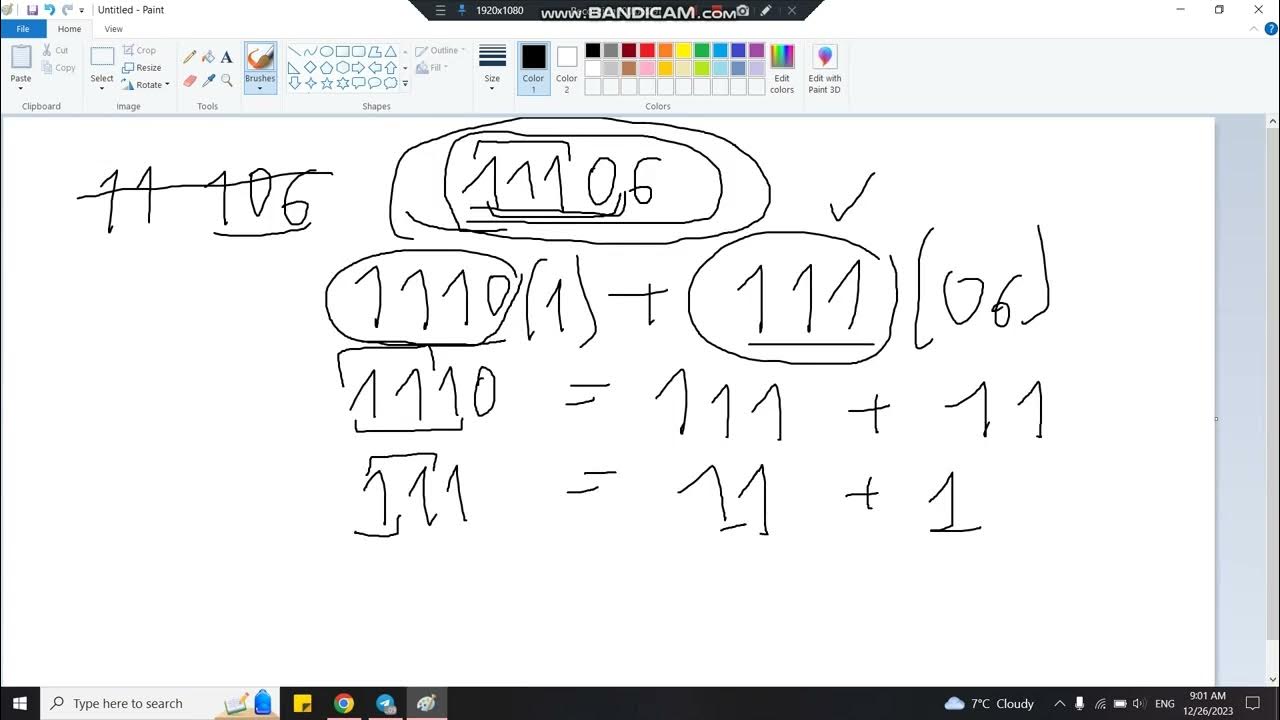 Untitled - Paint
1920x1080
www.BANDICAM.com
File
Home
View
Paste
Cut
Copy
Clipboard
Select
Crop
Resize
Rotate
Image
Tools
Brushes
Shapes
Outline
Fill
Size
Color 1
Color 2
Colors
Edit colors
Edit with Paint 3D
11 106 11106
1110(1) + 111(06)
1110 = 111 + 11
111 = 11 + 1
Type here to search
7°C Cloudy
ENG
9:01 AM
12/26/2023